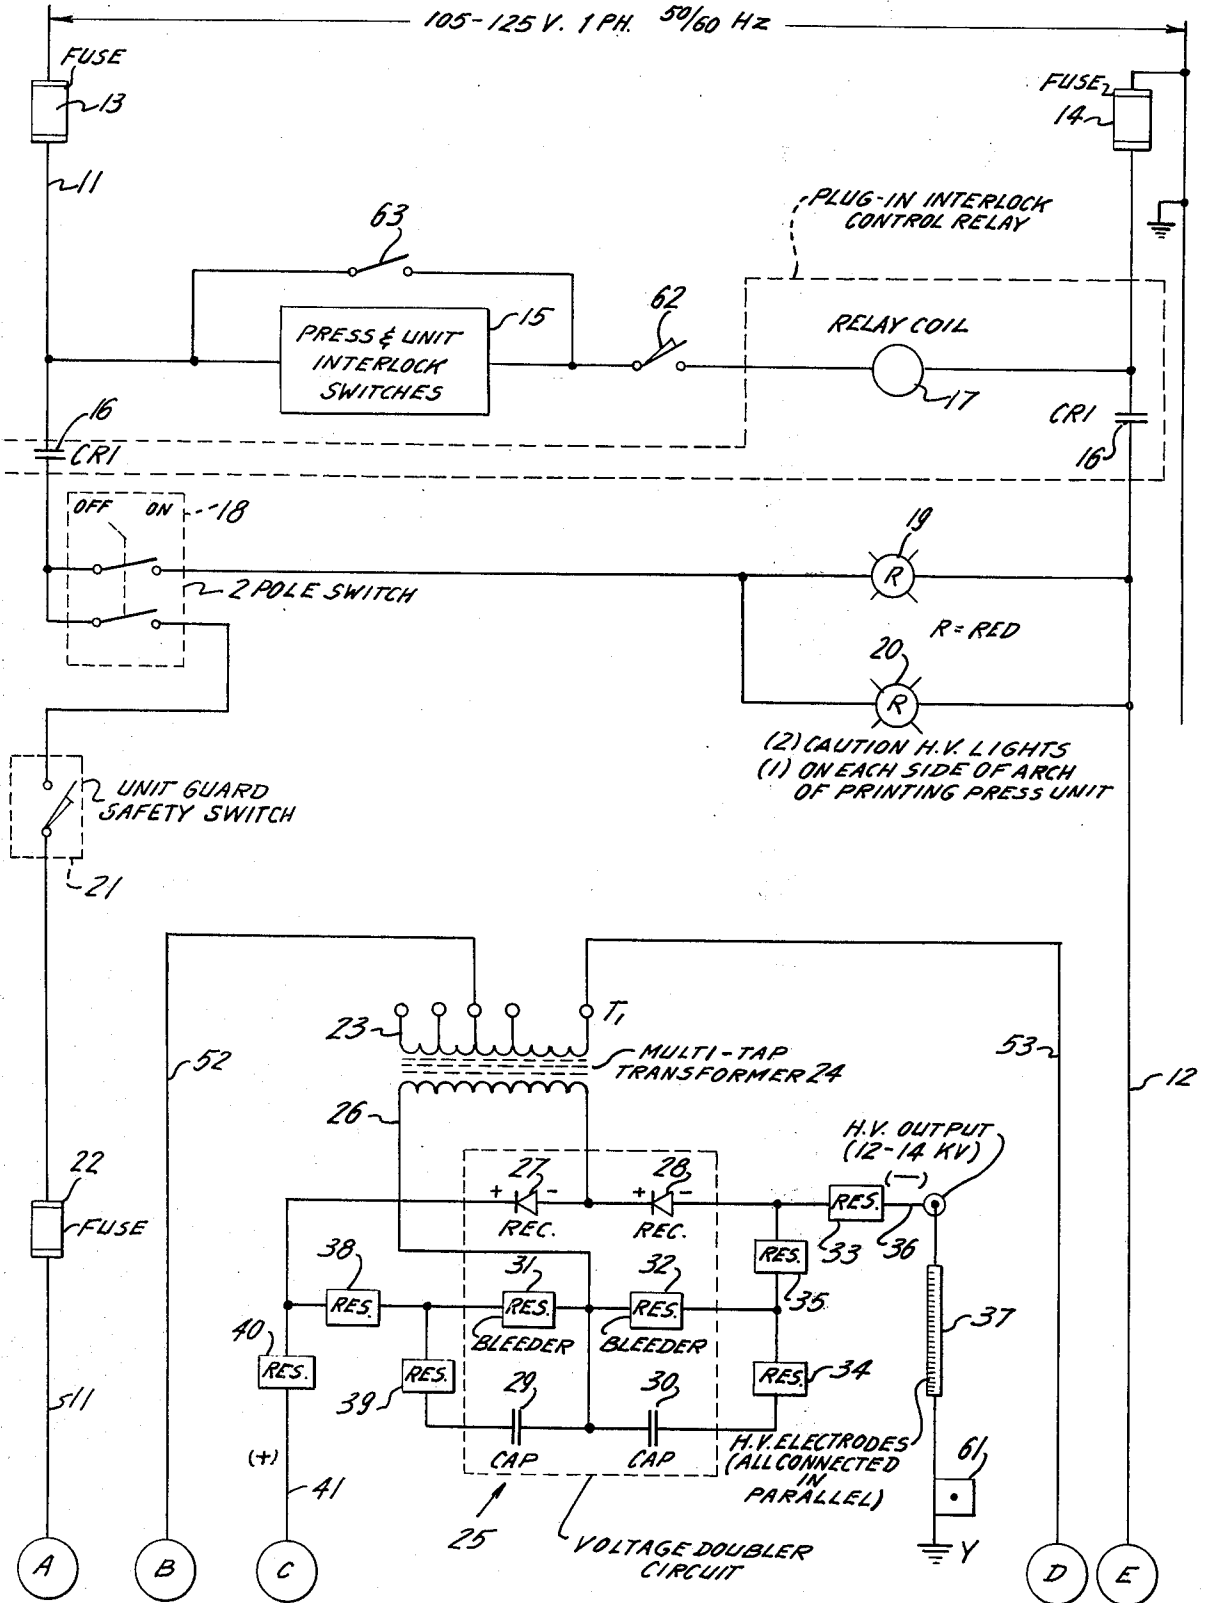 105-125 V. 1 PH. 50/60 Hz
FUSE
13
FUSE
14
11
PLUG-IN INTERLOCK
CONTROL RELAY
63
15
62
PRESS & UNIT
INTERLOCK
SWITCHES
RELAY COIL
17
16
CR1
CR1
16
OFF ON
18
2 POLE SWITCH
19
R
R = RED
20
R
(2) CAUTION H.V. LIGHTS
(1) ON EACH SIDE OF ARCH
OF PRINTING PRESS UNIT
UNIT GUARD
SAFETY SWITCH
21
23
T1
52
MULTI-TAP
TRANSFORMER 24
53
12
26
H.V. OUTPUT
(12-14 KV)
(-)
22
FUSE
27
+ -
REC.
28
+ -
REC.
RES.
33
36
38
RES.
31
RES.
BLEEDER
32
RES.
BLEEDER
RES.
35
37
40
RES.
RES.
39
29
CAP
30
CAP
RES.
34
11
(+)
41
H.V. ELECTRODES
(ALL CONNECTED
IN
PARALLEL)
61
25
VOLTAGE DOUBLER
CIRCUIT
Y
A
B
C
D
E